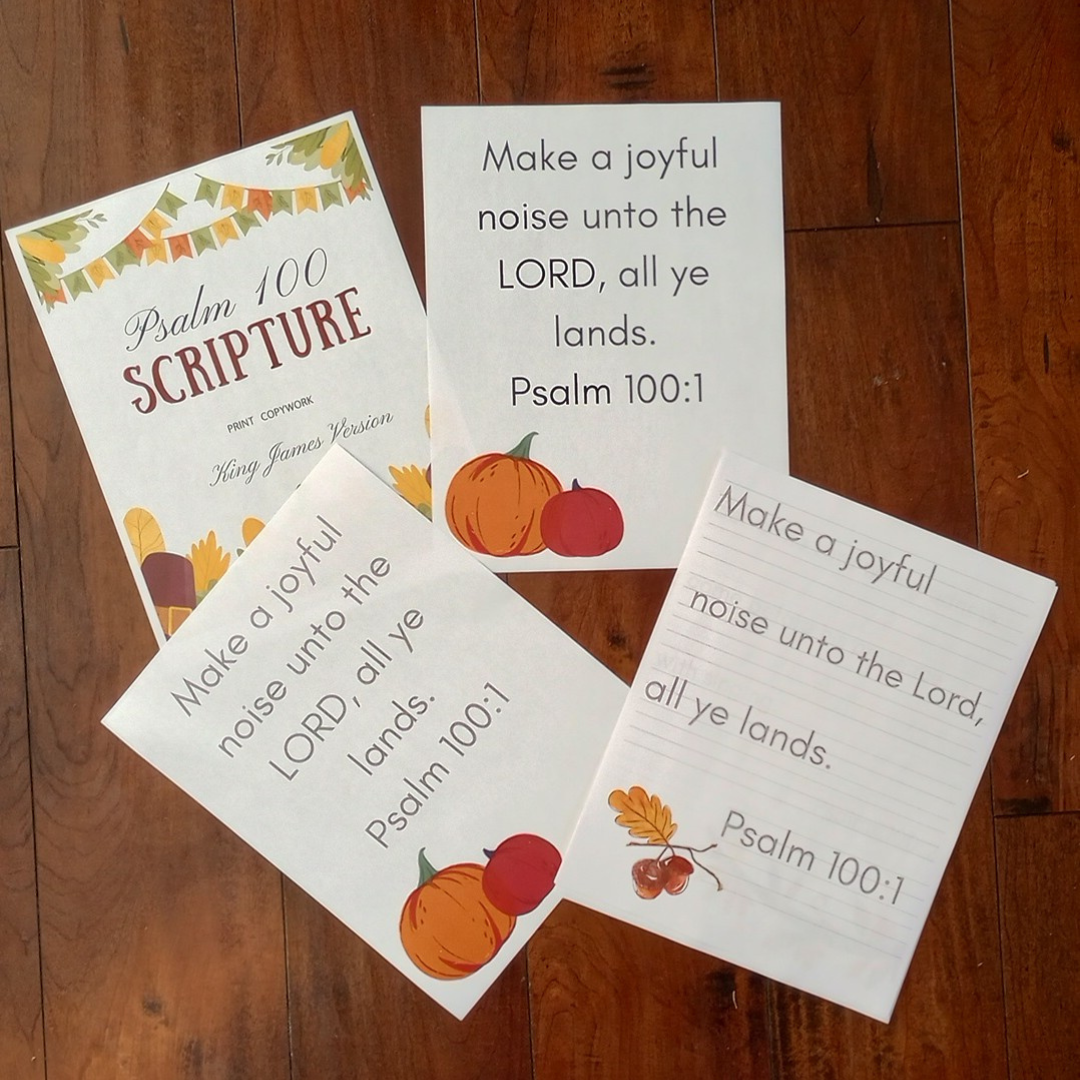 Psalm 100
SCRIPTURE
PRINT COPYWORK
King James Version
Make a joyful
noise unto the
LORD, all ye
lands.
Psalm 100:1
Make a joyful
noise unto the
LORD, all ye
lands.
Psalm 100:1
Make a joyful
noise unto the Lord,
all ye lands.
Psalm 100:1